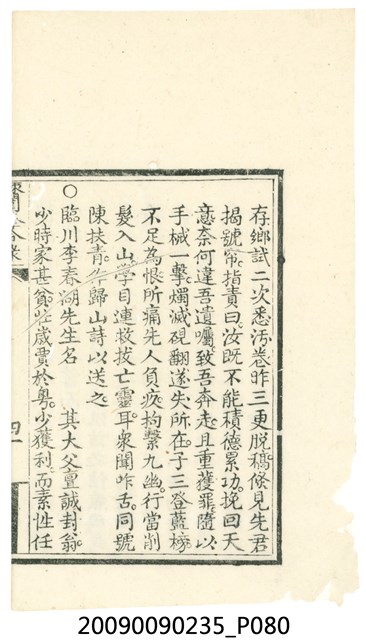 存鄉試二次悉污卷昨三更脫稿倏見先君
揭號簾指責曰汝既不能積德累功挽回天
意奈何違吾遺囑致吾奔走且重獲罪隨以
手械一擊燭滅硯翻遂失所在子三登藍榜
不足為恨所痛先人負疚拘繫九幽行當削
髮入山學目連救拔亡靈耳衆聞咋舌同號
陳扶青作歸山詩以送之
○臨川李春湖先生名 其大父置誠封翁
少時家甚貧壯歲賈於粵少獲利而素性任
四
20090090235_P080